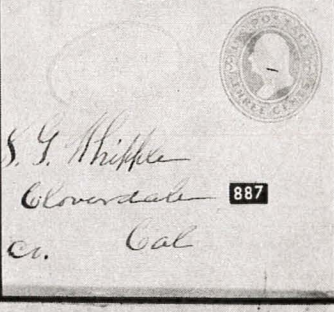 U.S. POSTAGE
THREE CENTS
S. G. Whipple
Cloverdale
887
Co. Cal